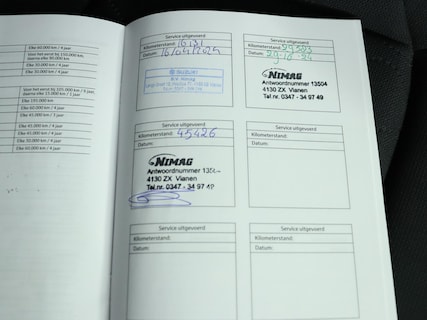 Elke 60.000 km / 4 jaar
Voor het eerst bij 150.000 km,
daarna elke 90.000 km
Elke 30.000 km / 4 jaar
Elke 30.000 km / 4 jaar
Voor het eerst bij 105.000 km / 4 jaar,
daarna elke 15.000 km / 1 jaar
Elke 150.000 km
Elke 60.000 km / 4 jaar
Elke 45.000 km / 3 jaar
Elke 45.000 km / 4 jaar
Elke 45.000 km / 4 jaar
Elke 30.000 km / 4 jaar
Elke 60.000 km / 4 jaar
Service uitgevoerd
Kilometerstand: 16131
Datum: 16/04/2024
SUZUKI
B.V. Nimag
Service uitgevoerd
Kilometerstand:
Datum:
NIMAG
Antwoordnummer 13504
4130 ZX Vianen
Tel.nr. 0347 - 34 97 49
Service uitgevoerd
Kilometerstand: 45426
Datum:
NIMAG
Antwoordnummer
4130 ZX Vianen
Tel.nr. 0347 - 34 97 49
Service uitgevoerd
Kilometerstand:
Datum:
Service uitgevoerd
Kilometerstand:
Datum:
Service uitgevoerd
Kilometerstand:
Datum: